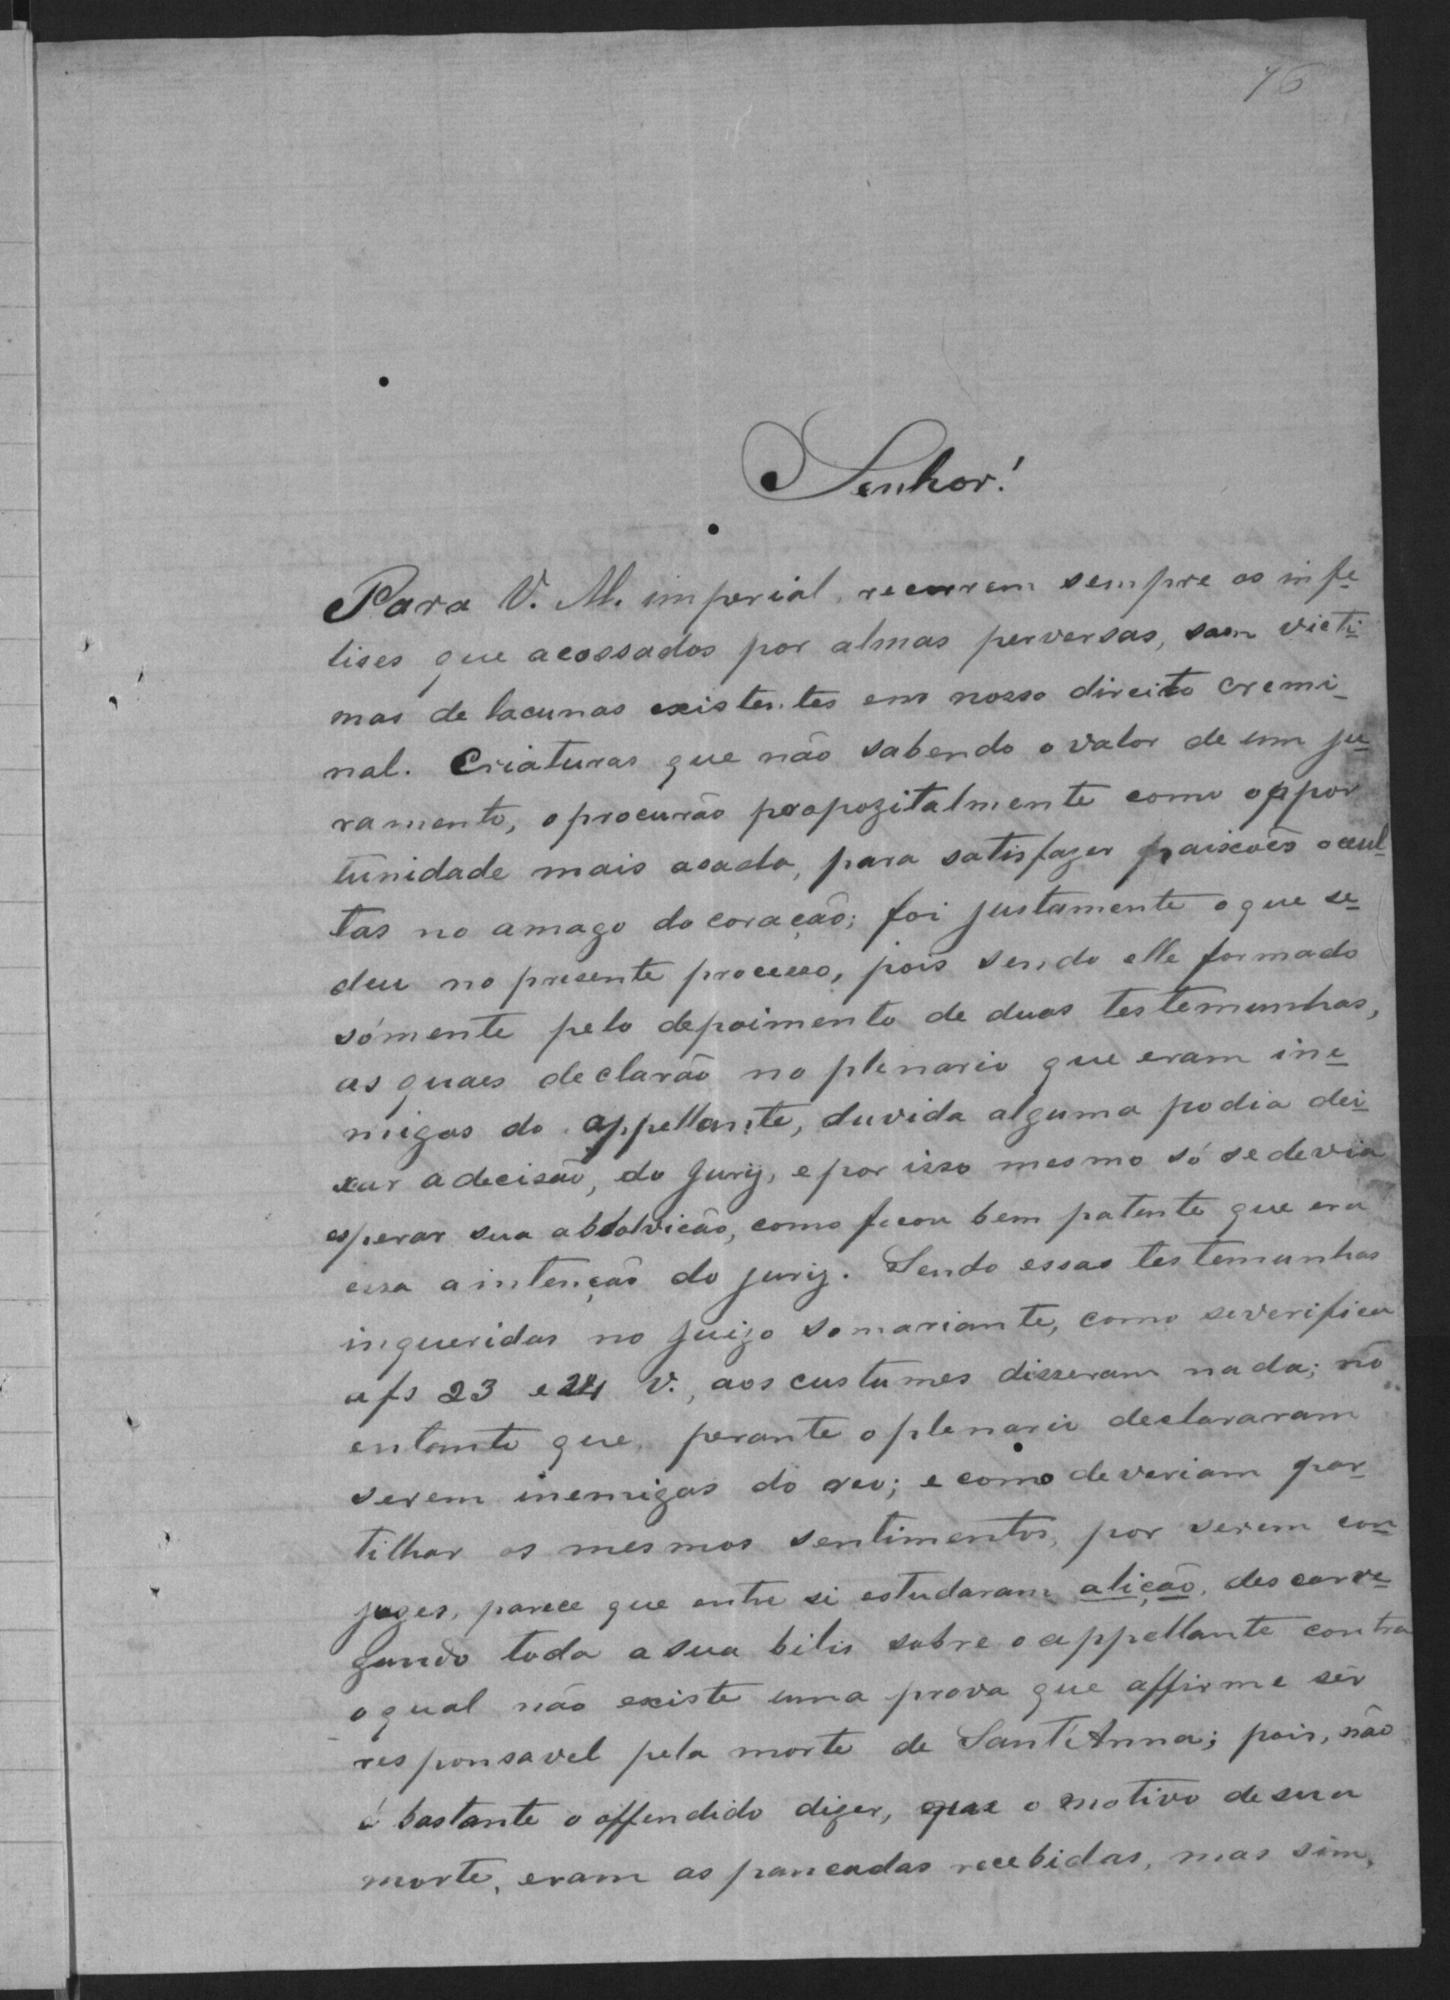 76
Senhor!
Para V. M. imperial, recurrem sempre os infe-
lises que acossados por almas perversas, sam victi-
mas de lacunas existentes em nosso direito cremi-
nal. Criaturas que não sabendo o valor de um ju-
ramento, o procurão propozitalmente como oppor
tunidade mais asada, para satisfazer paixoẽs ocul-
tas no amago do coração; foi justamente o que se-
deu no presente processo, pois sendo elle formado
sómente pelo depoimento de duas testemunhas,
as quaes declarão no plenario que eram ine-
migas do appellante, duvida alguma podia dei-
xar a decisão, do Jury, e por isso mesmo só se devia
esperar sua absolvicão, como ficou bem patente que era
essa a intenção do jury. Sendo essas testemunhas
inqueridas no juizo somariante, como se verifica
a fs 23 e 24 V., aos custumes disseram nada; no
entanto que, perante o plenario declararam
serem inemigas do reo; e como deveriam par-
tilhar os mesmos sentimentos, por serem con-
juges, parece que entre si estudaram a lição, descarre-
gando toda a sua bilis sobre o appellante contra
o qual não existe uma prova que affirme sêr
responsavel pela morte de Sant'Anna; pois, não
é bastante o offendido dizer, que o motivo de sua
morte, eram as pancadas recebidas, mas sim,